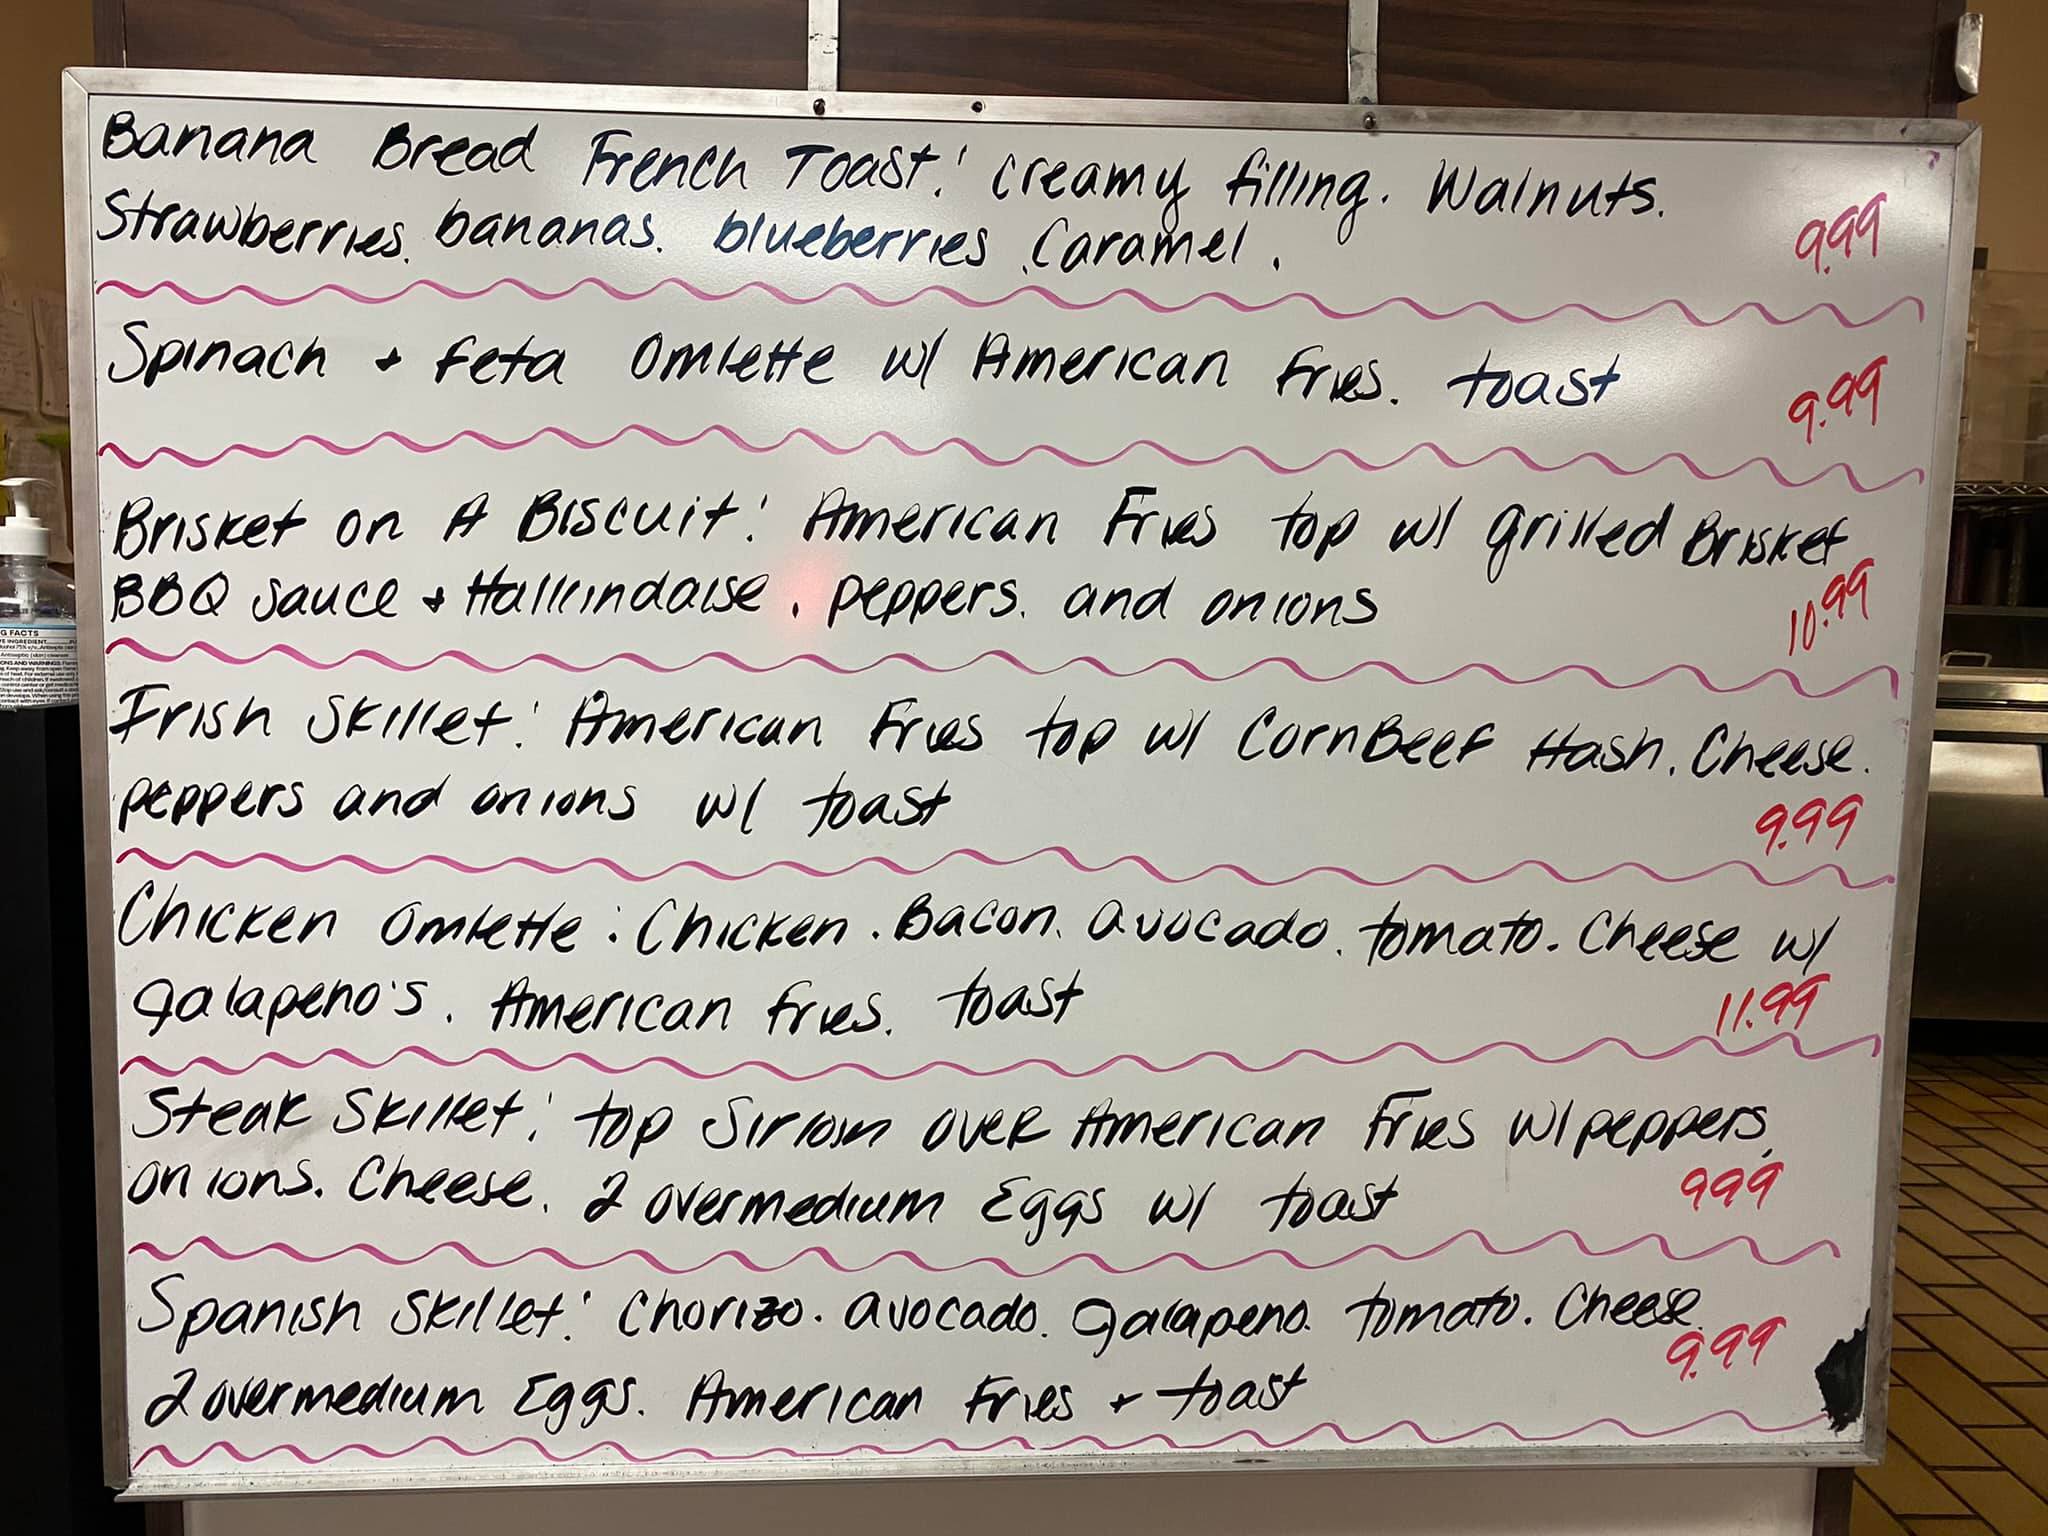 Banana Bread French Toast: creamy filling. Walnuts.
Strawberries. bananas. blueberries. Caramel.
9.99
Spinach + feta Omlette w/ American Fries. toast
9.99
Brisket on A Biscuit: American Fries top w/ grilled Brisket
BBQ sauce + Hallindaise. peppers. and onions
10.99
Irish Skillet: American Fries top w/ CornBeef Hash. Cheese.
peppers and onions w/ toast
9.99
Chicken Omlette: Chicken. Bacon. avocado. tomato. Cheese w/
Jalapeno's. American fries. toast
11.99
Steak Skillet: top Sirloin over American Fries w/ peppers,
onions. Cheese. 2 overmedium Eggs w/ toast
999
Spanish Skillet: Chorizo. avocado. Jalapeno. tomato. Cheese.
9.99
2 overmedium Eggs. American Fries + toast
G FACTS